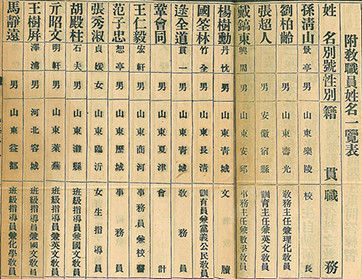 附教職員姓名一覽表
姓 名 別號 性別 籍 貫 職 務
孫清山 景亭 男 山東樂陵 校 長
劉柏齡 男 山東壽光 教務主任兼理化教員
張超人 男 安徽宿縣 訓育主任兼英文教員
戴鎬東 興周 男 山東安邱 事務主任兼數學教員
楊樹勳 丹忱 男 山東青城 文 牘
國筌林 竹全 男 山東長清 訓育員兼黨義公民教員
逄全道 貫一 男 山東青城 教務員
鞏會同 男 山東夏津 會 計
王仁毅 宏軒 男 山東商河 事務員兼校醫
范子忠 恕亭 男 山東歷城 事務員
張秀淑 貞媛 女 山東臨沂 女生指導員
胡殿柱 石夫 男 山東濰縣 班級指導員兼國文教員
亓昭文 明軒 男 山東萊蕪 班級指導員兼英文教員
王樹屏 澤浦 男 河北容城 班級指導員兼國文教員
馬靜遠 男 山東益都 班級指導員兼化學教員